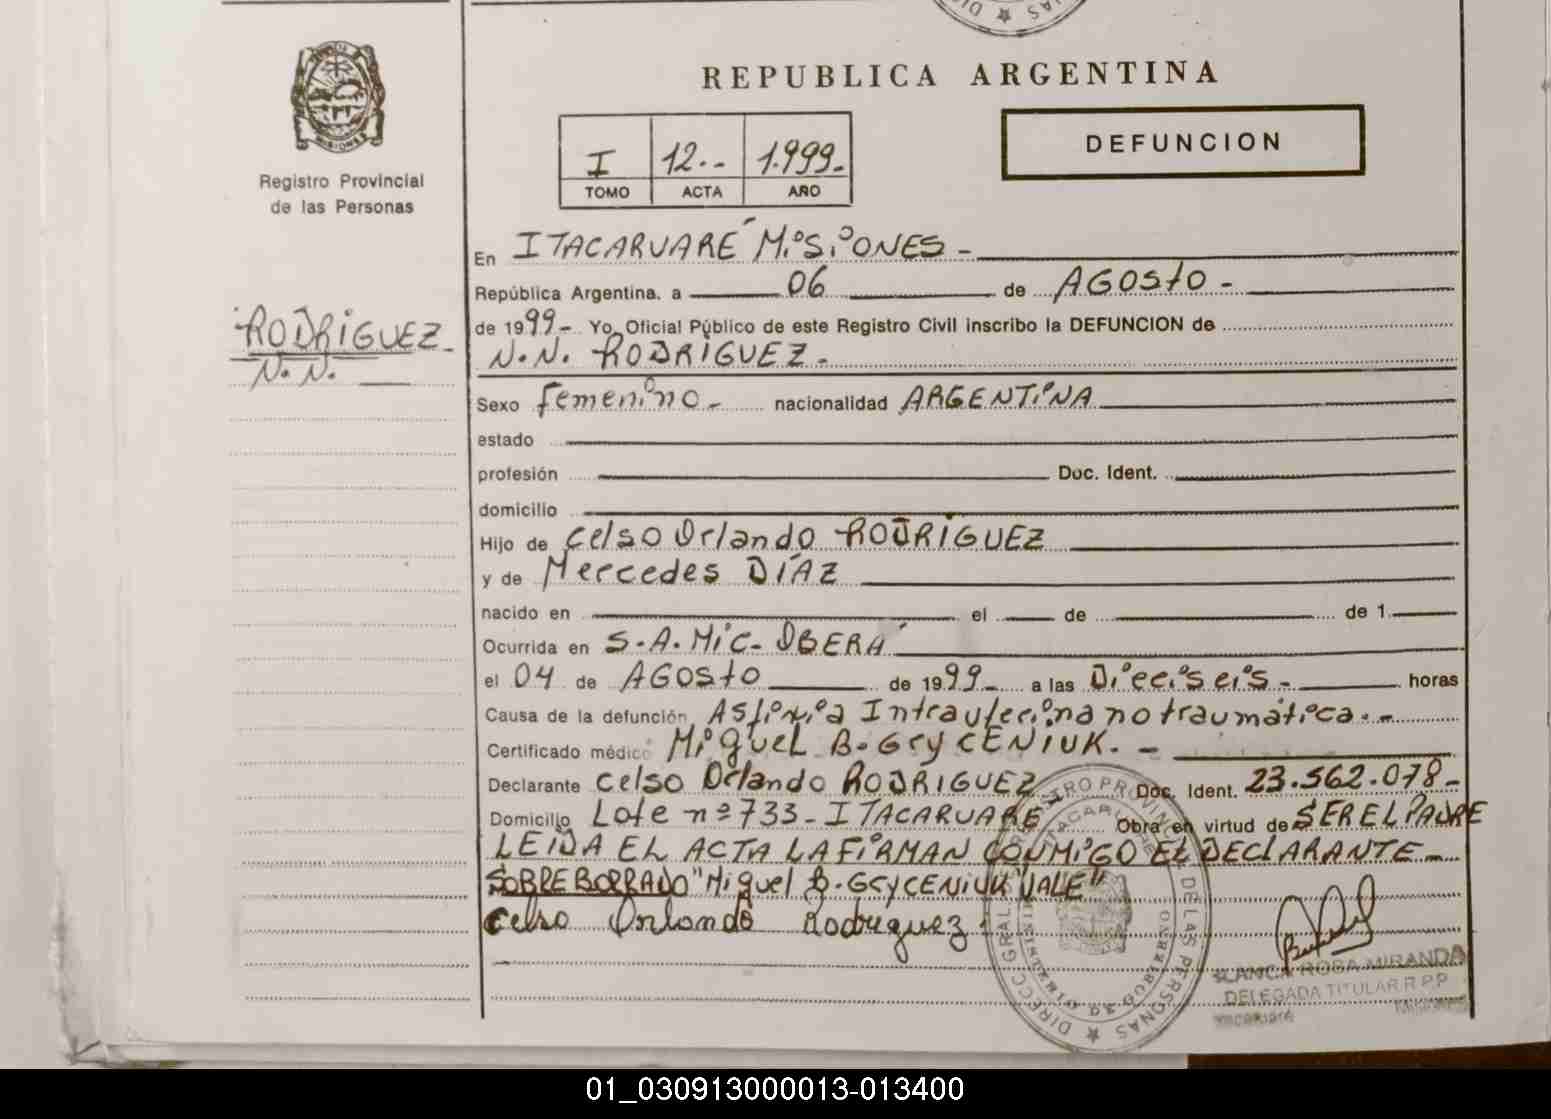 REPUBLICA ARGENTINA
MISIONES
Registro Provincial
de las Personas
I 12.- 1.999.-
TOMO ACTA AÑO
DEFUNCION
RODRÍGUEZ.
N.N.
En ITACARUARÉ MISIONES -
República Argentina, a 06 de AGOSTO -
de 1999 - Yo, Oficial Público de este Registro Civil inscribo la DEFUNCION de
N.N. RODRÍGUEZ.-
Sexo femenino.- nacionalidad ARGENTINA
estado
profesión Doc. Ident.
domicilio
Hijo de Celso Orlando RODRÍGUEZ
y de Mercedes DÍAZ
nacido en el de de 1
Ocurrida en S.A.MIC- OBERÁ
el 04 de AGOSTO de 1999 - a las Dieciseis - horas
Causa de la defunción Asfixia Intrauterina no traumática.-
Certificado médico MIGUEL B. GRYCENIUK.-
Declarante Celso Orlando RODRIGUEZ Doc. Ident. 23.562.078-
Domicilio Lote nº 733- ITACARUARÉ Obra en virtud de SER EL PADRE
LEIDA EL ACTA LA FIRMAN CONMIGO EL DECLARANTE -
SOBREBORRADO "Miguel B. GRYCENIUK "VALE"
Celso Orlando Rodriguez.
BLANCA ROSA MIRANDA
DELEGADA TITULAR R.P.P
Itacaruaré
DIRECC. GRAL. REGISTRO PROVINCIAL DE LAS PERSONAS
ITACARUARE
MINISTERIO DE GOBIERNO
01_030913000013-013400